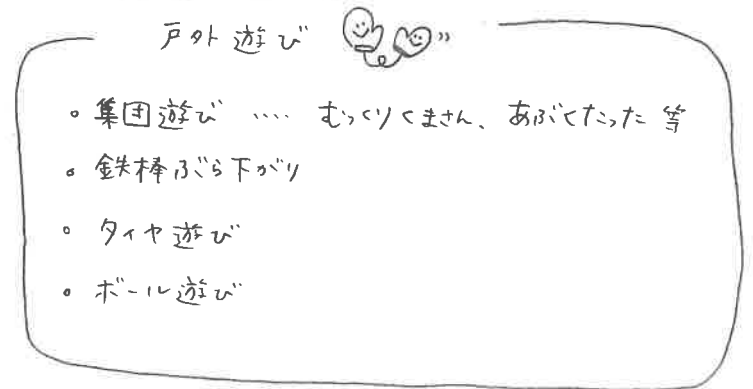 戸外遊び
・集団遊び ‥‥ むっくりくまさん、あぶくたった 等
・鉄棒ぶら下がり
・タイヤ遊び
・ボール遊び